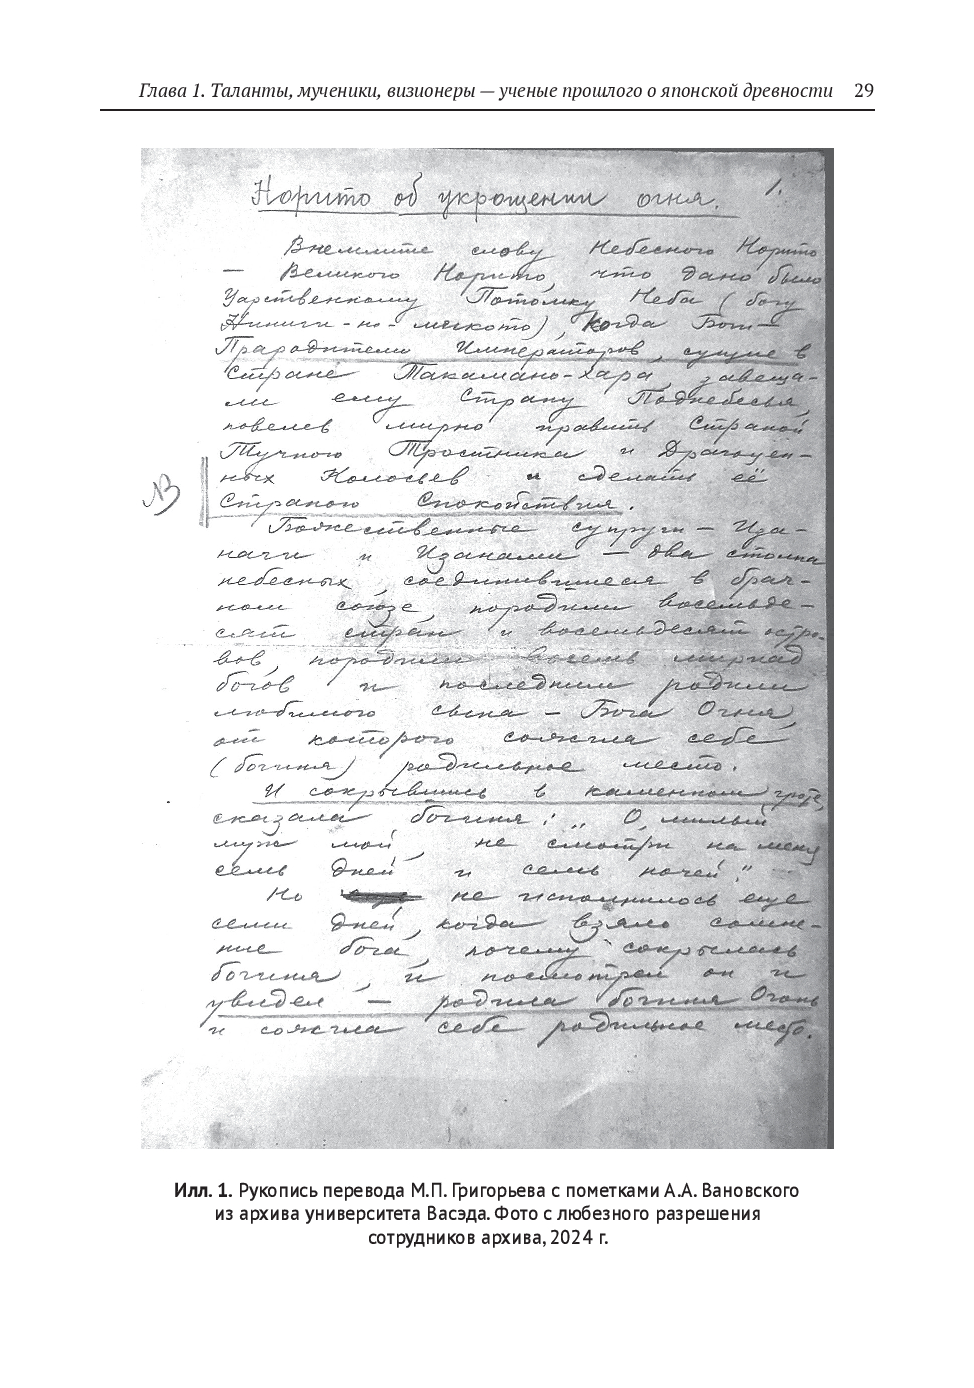 Глава 1. Таланты, мученики, визионеры — ученые прошлого о японской древности 29
Норито об укрощении огня. 1.
Внемлите слову Небесного Норито
— Великого Норито, что дано было
Царственному Потомку Неба (богу
Ниниги-но-микото), когда Боги—
Прародители Императоров, сущие в
Стране Такамано-Хара, завеща-
ли ему Страну Поднебесья,
повелев мирно править Страной
Тучного Тростника и Драгоцен-
ных Колосьев и сделать её
NB Страною Спокойствия.
Божественные супруги — Иза-
наги и Изанами — два столпа
небесных, соединившиеся в брач-
ном союзе, породили восемьде-
сят стран и восемьдесят остро-
вов, породили восемь мириад
богов и последним родили
любимого сына — Бога Огня,
от которого сожгла себе
(богиня) родильное место.
И сокрывшись в каменном гроте,
сказала богиня: „О, милый
муж мой, не смотри на меня
семь дней и семь ночей."
Но не исполнилось еще
семи дней, когда взяло сомне-
ние бога, почему сокрылась
богиня, и посмотрел он и
увидел — родила богиня Огонь
и сожгла себе родильное место.
Илл. 1. Рукопись перевода М.П. Григорьева с пометками А.А. Вановского
из архива университета Васэда. Фото с любезного разрешения
сотрудников архива, 2024 г.